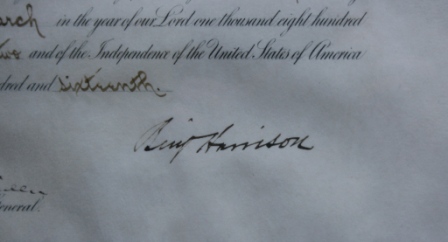 arch in the year of our Lord one thousand eight hundred
two and of the Independence of the United States of America
dred and sixteenth.
Benj Harrison
eneral.